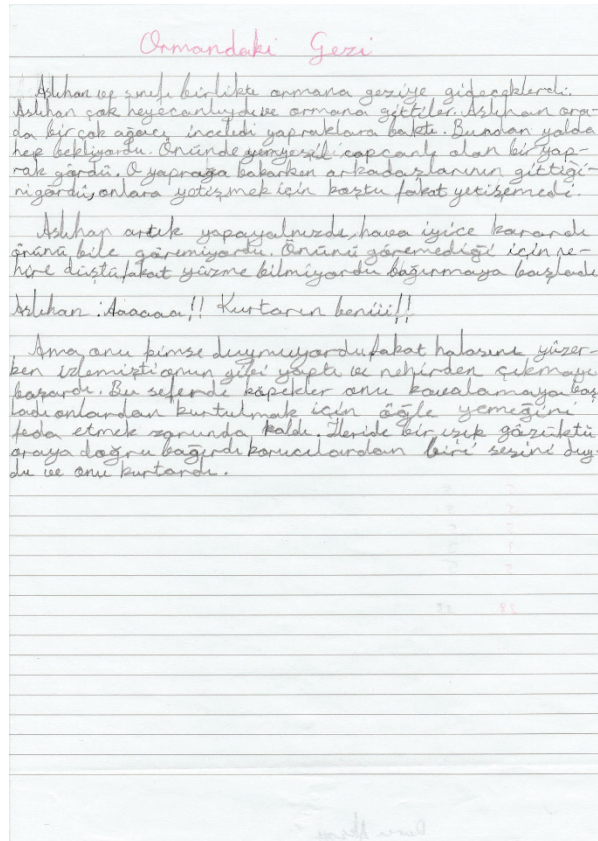 Ormandaki Gezi
Aslıhan ve sınıfı birlikte ormana geziye gideceklerdi.
Aslıhan çok heyecanlıydı ve ormana gittiler. Aslıhan ora-
da bir çok ağacı inceledi yapraklara baktı. Bundan yolda
hep bekliyordu. Önünde yemyeşil capcanlı olan bir yap-
rak gördü. O yaprağa bakarken arkadaşlarının gittiği-
ni gördü, onlara yetişmek için koştu fakat yetişemedi.
Aslıhan artık yapayalnızdı, hava iyice karardı
önünü bile göremiyordu. Önünü göremediği için ne-
hire düştü fakat yüzme bilmiyordu bağırmaya başladı
Aslıhan : Aaaaaa!! Kurtarın beniii!!
Ama onu kimse duymuyordu fakat halasını yüzer-
ken izlemişti onun gibi yaptı ve nehirden çıkmayı
başardı. Bu seferde köpekler onu kovalamaya baş
ladı onlardan kurtulmak için öğle yemeğini
feda etmek zorunda kaldı. İleride bir ışık gözüktü
oraya doğru bağırdı koruculardan biri sesini duy-
du ve onu kurtardı.